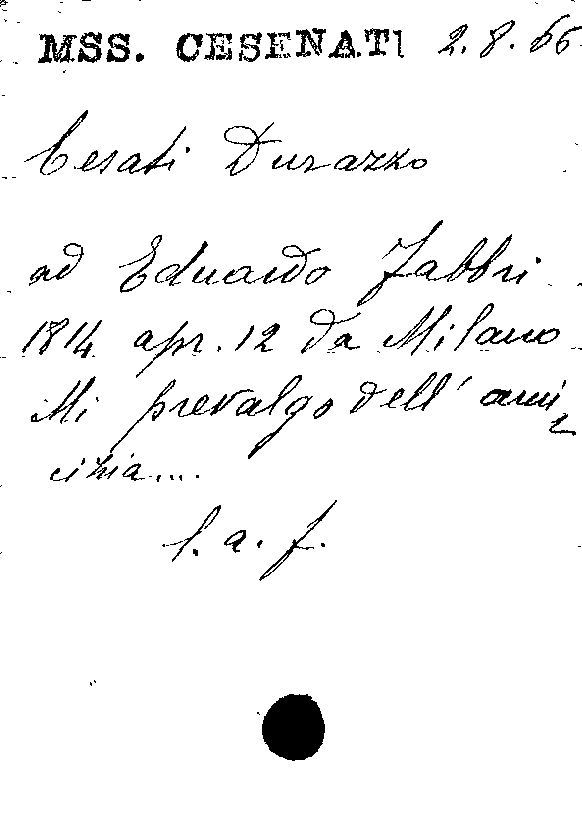 MSS. CESENATI 2.8.66
Cesati Durazzo
ad Eduardo Fabbri
1814 apr. 12 da Milano
Mi prevalgo dell' ami
cizia....
l. a. f.